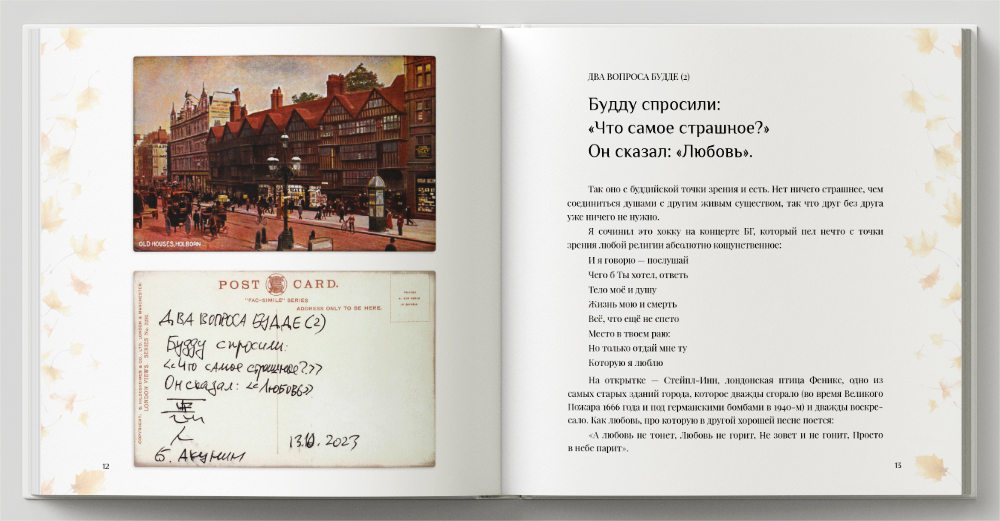 OLD HOUSES, HOLBORN
POST CARD.
"FAC-SIMILE" SERIES
ADDRESS ONLY TO BE HERE.
LONDON VIEWS. SERIES No.
ДВА ВОПРОСА БУДДЕ (2)
Будду спросили:
«Что самое страшное?»
Он сказал: «Любовь»
Б. Акунин
13.10.2023
12
ДВА ВОПРОСА БУДДЕ (2)
Будду спросили:
«Что самое страшное?»
Он сказал: «Любовь».
Так оно с буддийской точки зрения и есть. Нет ничего страшнее, чем
соединиться душами с другим живым существом, так что друг без друга
уже ничего не нужно.
Я сочинил это хокку на концерте БГ, который пел нечто с точки
зрения любой религии абсолютно кощунственное:
И я говорю — послушай
Чего б Ты хотел, ответь
Тело моё и душу
Жизнь мою и смерть
Всё, что ещё не спето
Место в твоем раю:
Но только отдай мне ту
Которую я люблю
На открытке — Стейпл-Инн, лондонская птица Феникс, одно из
самых старых зданий города, которое дважды сгорало (во время Великого
Пожара 1666 года и под германскими бомбами в 1940-м) и дважды воскре-
сало. Как любовь, про которую в другой хорошей песне поется:
«А любовь не тонет, Любовь не горит. Не зовет и не гонит, Просто
в небе парит».
13